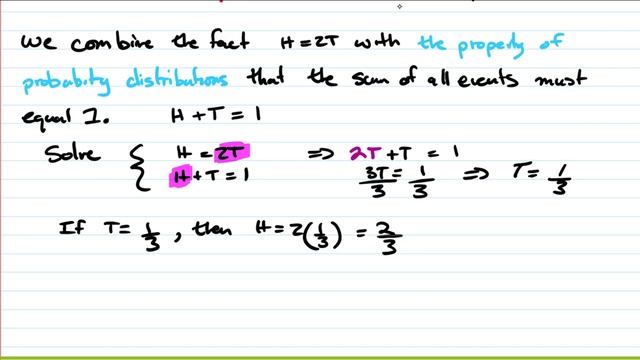 We combine the fact H=2T with the property of
probability distributions that the sum of all events must
equal 1. H + T = 1
Solve { H = 2T ⇒ 2T + T = 1
H + T = 1 3T/3 = 1/3 ⇒ T = 1/3
If T = 1/3, then H = 2(1/3) = 2/3